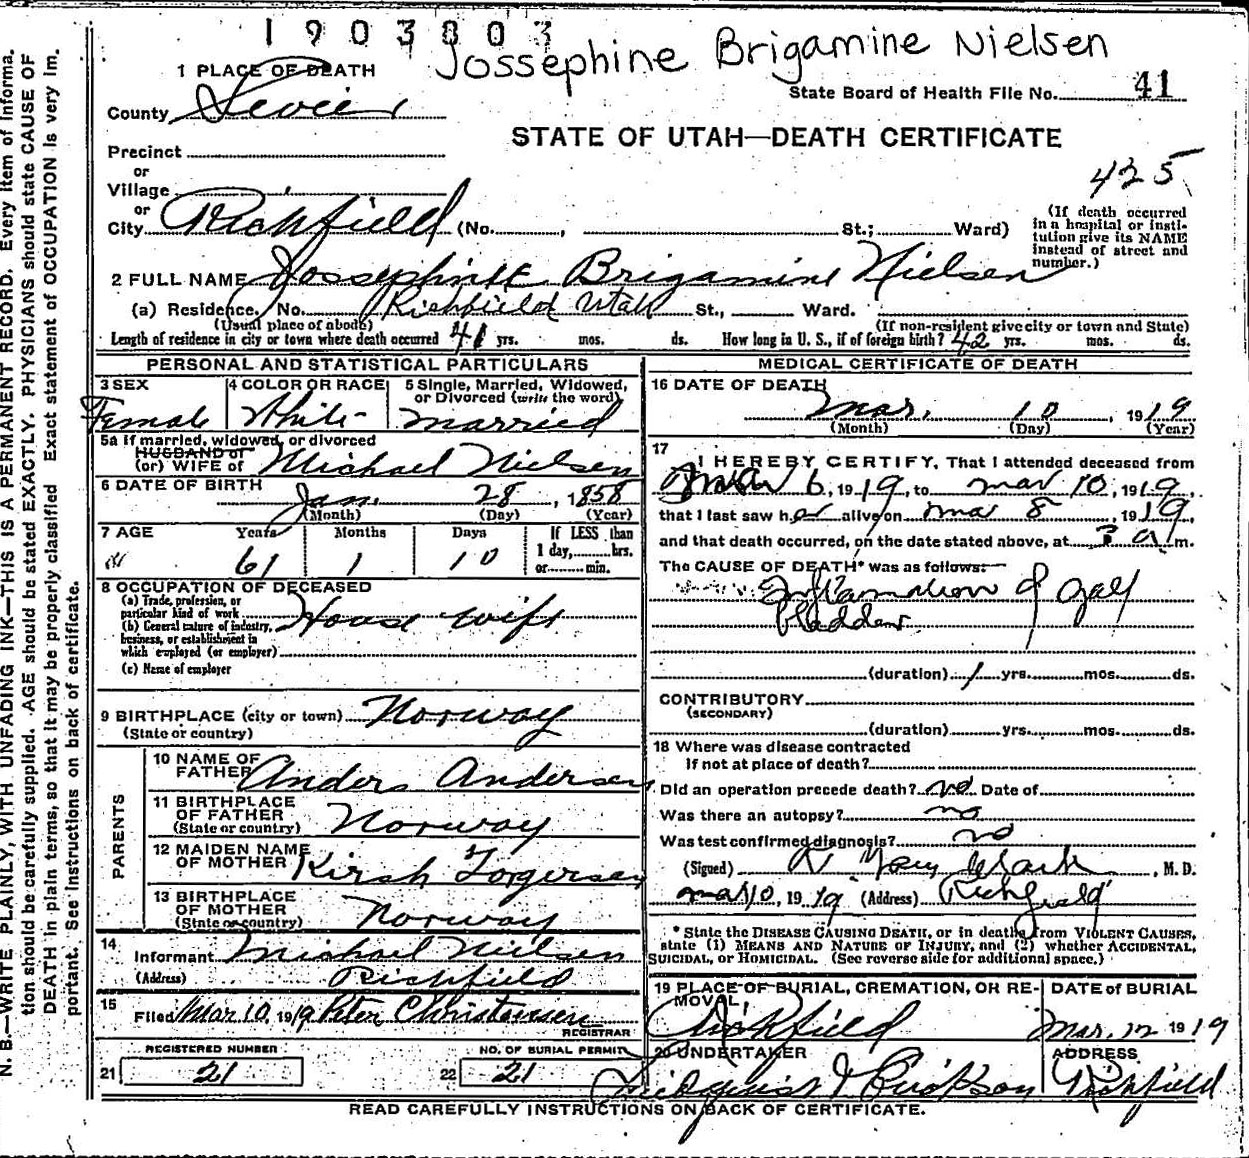 1903803
Jossephine Brigamine Nielsen
1 PLACE OF DEATH
State Board of Health File No. 41
County Sevier
STATE OF UTAH—DEATH CERTIFICATE
Precinct
or
425
Village
or
City Richfield (No. , St.; Ward)
(If death occurred in a hospital or insti-
tution give its NAME instead of street and number.)
2 FULL NAME Jossephine Brigamine Nielsen
(a) Residence. No. Richfield Utah St., Ward.
(Usual place of abode) (If non-resident give city or town and State)
Length of residence in city or town where death occurred 41 yrs. mos. ds. How long in U. S., if of foreign birth? 42 yrs. mos. ds.
PERSONAL AND STATISTICAL PARTICULARS
3 SEX Female
4 COLOR OR RACE White
5 Single, Married, Widowed, or Divorced (write the word) married
5a If married, widowed, or divorced
HUSBAND of
(or) WIFE of Michael Nielsen
6 DATE OF BIRTH Jan. 28, 1858
(Month) (Day) (Year)
7 AGE Years Months Days If LESS than
61 1 10 1 day, hrs.
or min.
8 OCCUPATION OF DECEASED
(a) Trade, profession, or
particular kind of work House wife
(b) General nature of industry,
business, or establishment in
which employed (or employer)
(c) Name of employer
9 BIRTHPLACE (city or town) Norway
(State or country)
PARENTS
10 NAME OF FATHER Anders Andersen
11 BIRTHPLACE OF FATHER (State or country) Norway
12 MAIDEN NAME OF MOTHER Kirsh Torgersen
13 BIRTHPLACE OF MOTHER (State or country) Norway
14
Informant Michael Nielsen
(Address) Richfield
15
Filed Mar 10, 1919 Peter Christensen
REGISTRAR
REGISTERED NUMBER
21 21
NO. OF BURIAL PERMIT
22 21
MEDICAL CERTIFICATE OF DEATH
16 DATE OF DEATH
Mar. 10, 1919
(Month) (Day) (Year)
17
I HEREBY CERTIFY, That I attended deceased from
6, 1919, to mar 10, 1919,
that I last saw her alive on mar 8, 1919,
and that death occurred, on the date stated above, at 3 a m.
The CAUSE OF DEATH* was as follows:
Inflamation of gall
bladder
(duration) 1 yrs. mos. ds.
CONTRIBUTORY
(SECONDARY)
(duration) yrs. mos. ds.
18 Where was disease contracted
If not at place of death?
Did an operation precede death? no Date of
Was there an autopsy? no
Was test confirmed diagnosis? no
(Signed) , M. D.
mar 10, 1919 (Address) Richfield
* State the DISEASE CAUSING DEATH, or in deaths from VIOLENT CAUSES,
state (1) MEANS AND NATURE OF INJURY, and (2) whether ACCIDENTAL,
SUICIDAL, or HOMICIDAL. (See reverse side for additional space.)
19 PLACE OF BURIAL, CREMATION, OR RE-
MOVAL,
Richfield
DATE of BURIAL
Mar. 12 1919
20 UNDERTAKER
ADDRESS
Richfield
READ CAREFULLY INSTRUCTIONS ON BACK OF CERTIFICATE.
N. B.—WRITE PLAINLY, WITH UNFADING INK—THIS IS A PERMANENT RECORD. Every item of informa-
tion should be carefully supplied. AGE should be stated EXACTLY. PHYSICIANS should state CAUSE OF
DEATH in plain terms, so that it may be properly classified Exact statement of OCCUPATION is very im-
portant. See instructions on back of certificate.